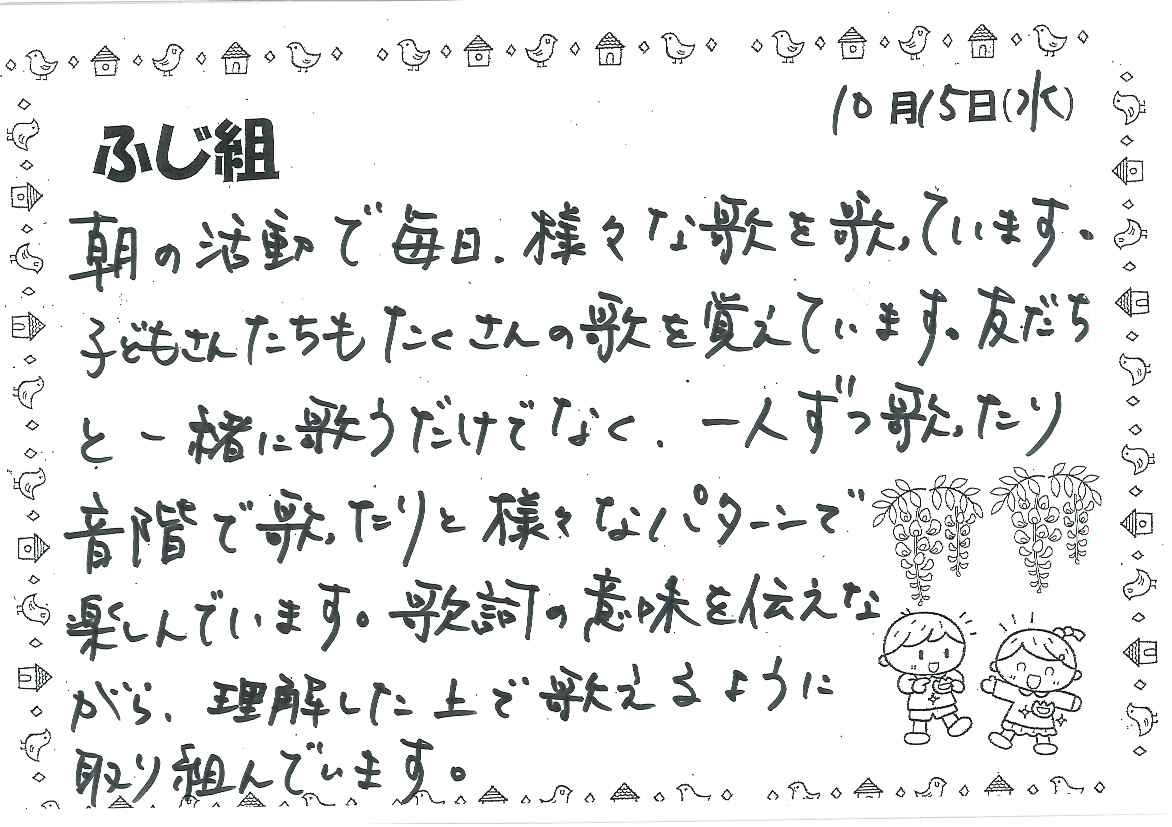 10月15日(水)
ふじ組
朝の活動で毎日、様々な歌を歌っています。
子どもさんたちもたくさんの歌を覚えています。友だち
と一緒に歌うだけでなく、一人ずつ歌ったり
音階で歌ったりと様々なパターンで
楽しんでいます。歌詞の意味を伝えな
がら、理解した上で歌えるように
取り組んでいます。